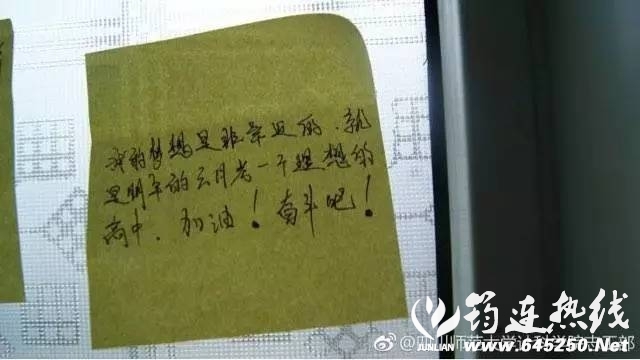 我的梦想是非常近的，就
是明年的六月考一个理想的
高中，加油！奋斗吧！
筠连热线
JUNLIAN
www.645250.Net